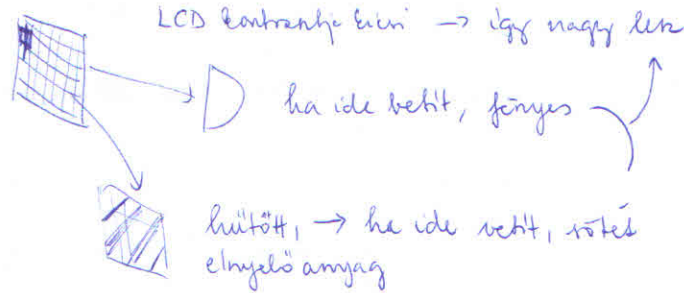 LCD kontrasztja kicsi → így nagy lesz
ha ide vetít, fényes
hűtött, → ha ide vetít, sötét
elnyelő anyag